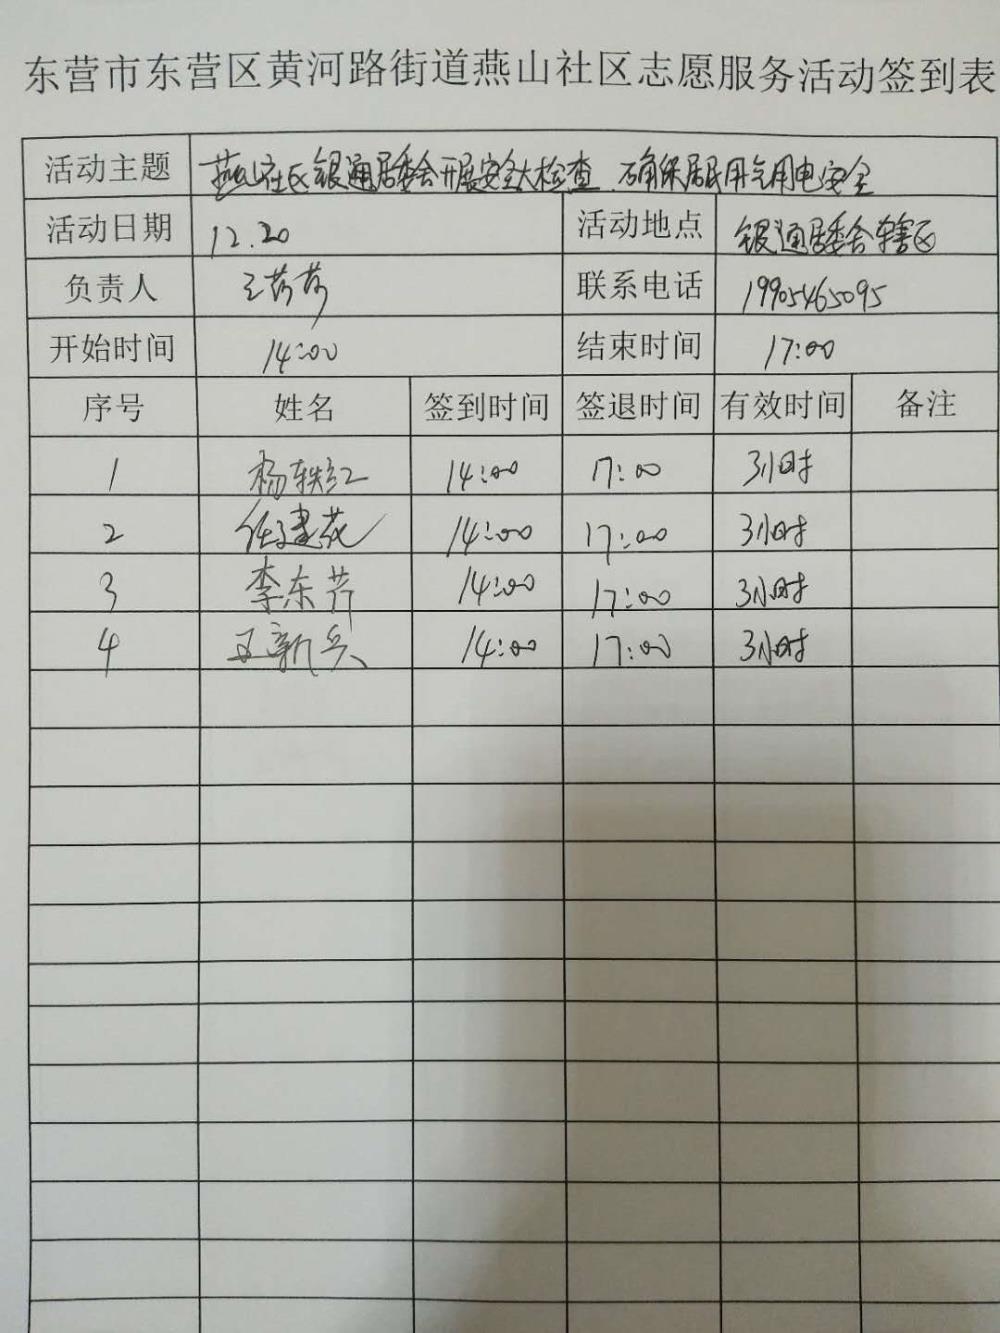 东营市东营区黄河路街道燕山社区志愿服务活动签到表
活动主题 燕山社区银通居委会开展安全大检查,确保居民用气用电安全
活动日期 12.20 活动地点 银通居委会辖区
负责人 王芳芳 联系电话 19905465095
开始时间 14:00 结束时间 17:00
序号 姓名 签到时间 签退时间 有效时间 备注
1 杨轶红 14:00 17:00 3小时
2 任建花 14:00 17:00 3小时
3 李东芹 14:00 17:00 3小时
4 王新兵 14:00 17:00 3小时